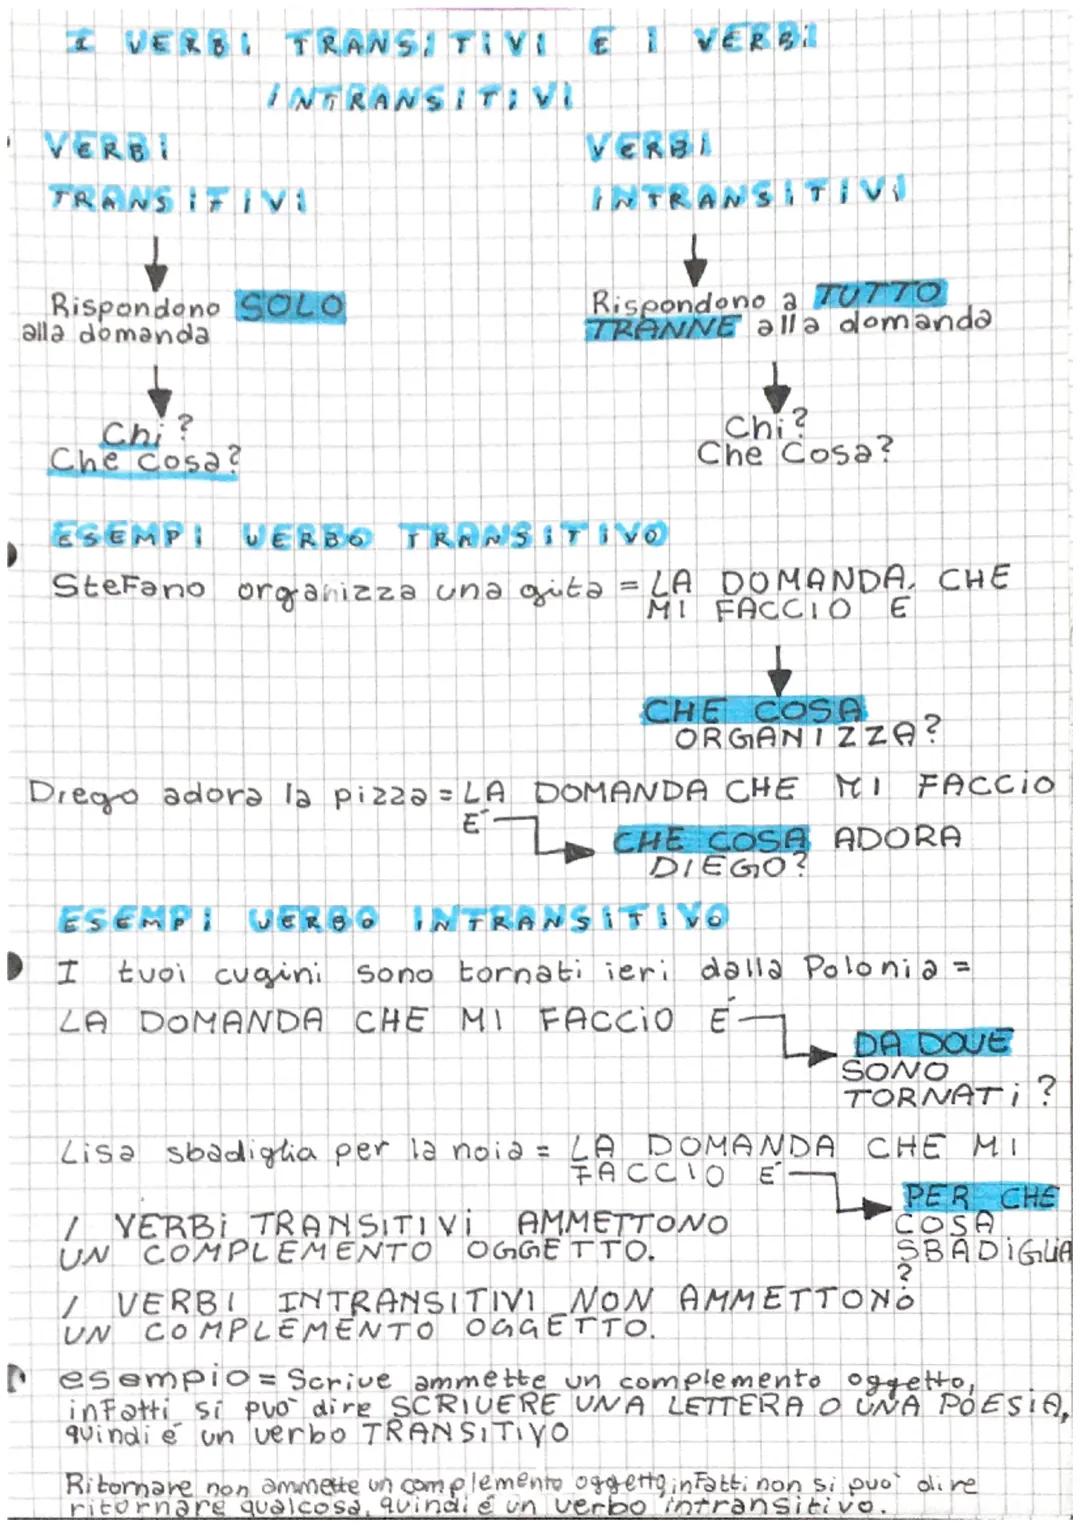 I VERBI TRANSITIVI E I VERBI
INTRANSITIVI
VERBI
TRANSITIVI
Rispondono SOLO
alla domanda
Chi?
Che cosa?
VERBI
INTRANSITIVI
Rispondono a TUTTO
TRANNE alla domanda
Chi?
Che Cosa?
ESEMPI VERBO TRANSITIVO
Stefano organizza una gita = LA DOMANDA CHE
MI FACCIO E
CHE COSA
ORGANIZZA?
Diego adora la pizza = LA DOMANDA CHE MI FACCIO
E'
CHE COSA ADORA
DIEGO?
ESEMPI VERBO INTRANSITIVO
I tuoi cugini sono tornati ieri dalla Polonia =
LA DOMANDA CHE MI FACCIO E'
DA DOVE
SONO
TORNATI?
Lisa sbadiglia per la noia = LA DOMANDA CHE MI
FACCIO E'
PER CHE
COSA
SBADIGLIA
?
I VERBI TRANSITIVI AMMETTONO
UN COMPLEMENTO OGGETTO.
I VERBI INTRANSITIVI NON AMMETTONO
UN COMPLEMENTO OGGETTO.
esempio = Scrive ammette un complemento oggetto,
infatti si può dire SCRIVERE UNA LETTERA O UNA POESIA,
quindi é un verbo TRANSITIVO
Ritornare non ammette un complemento oggetto, infatti non si puo' dire
ritornare qualcosa, quindi é un verbo intransitivo.